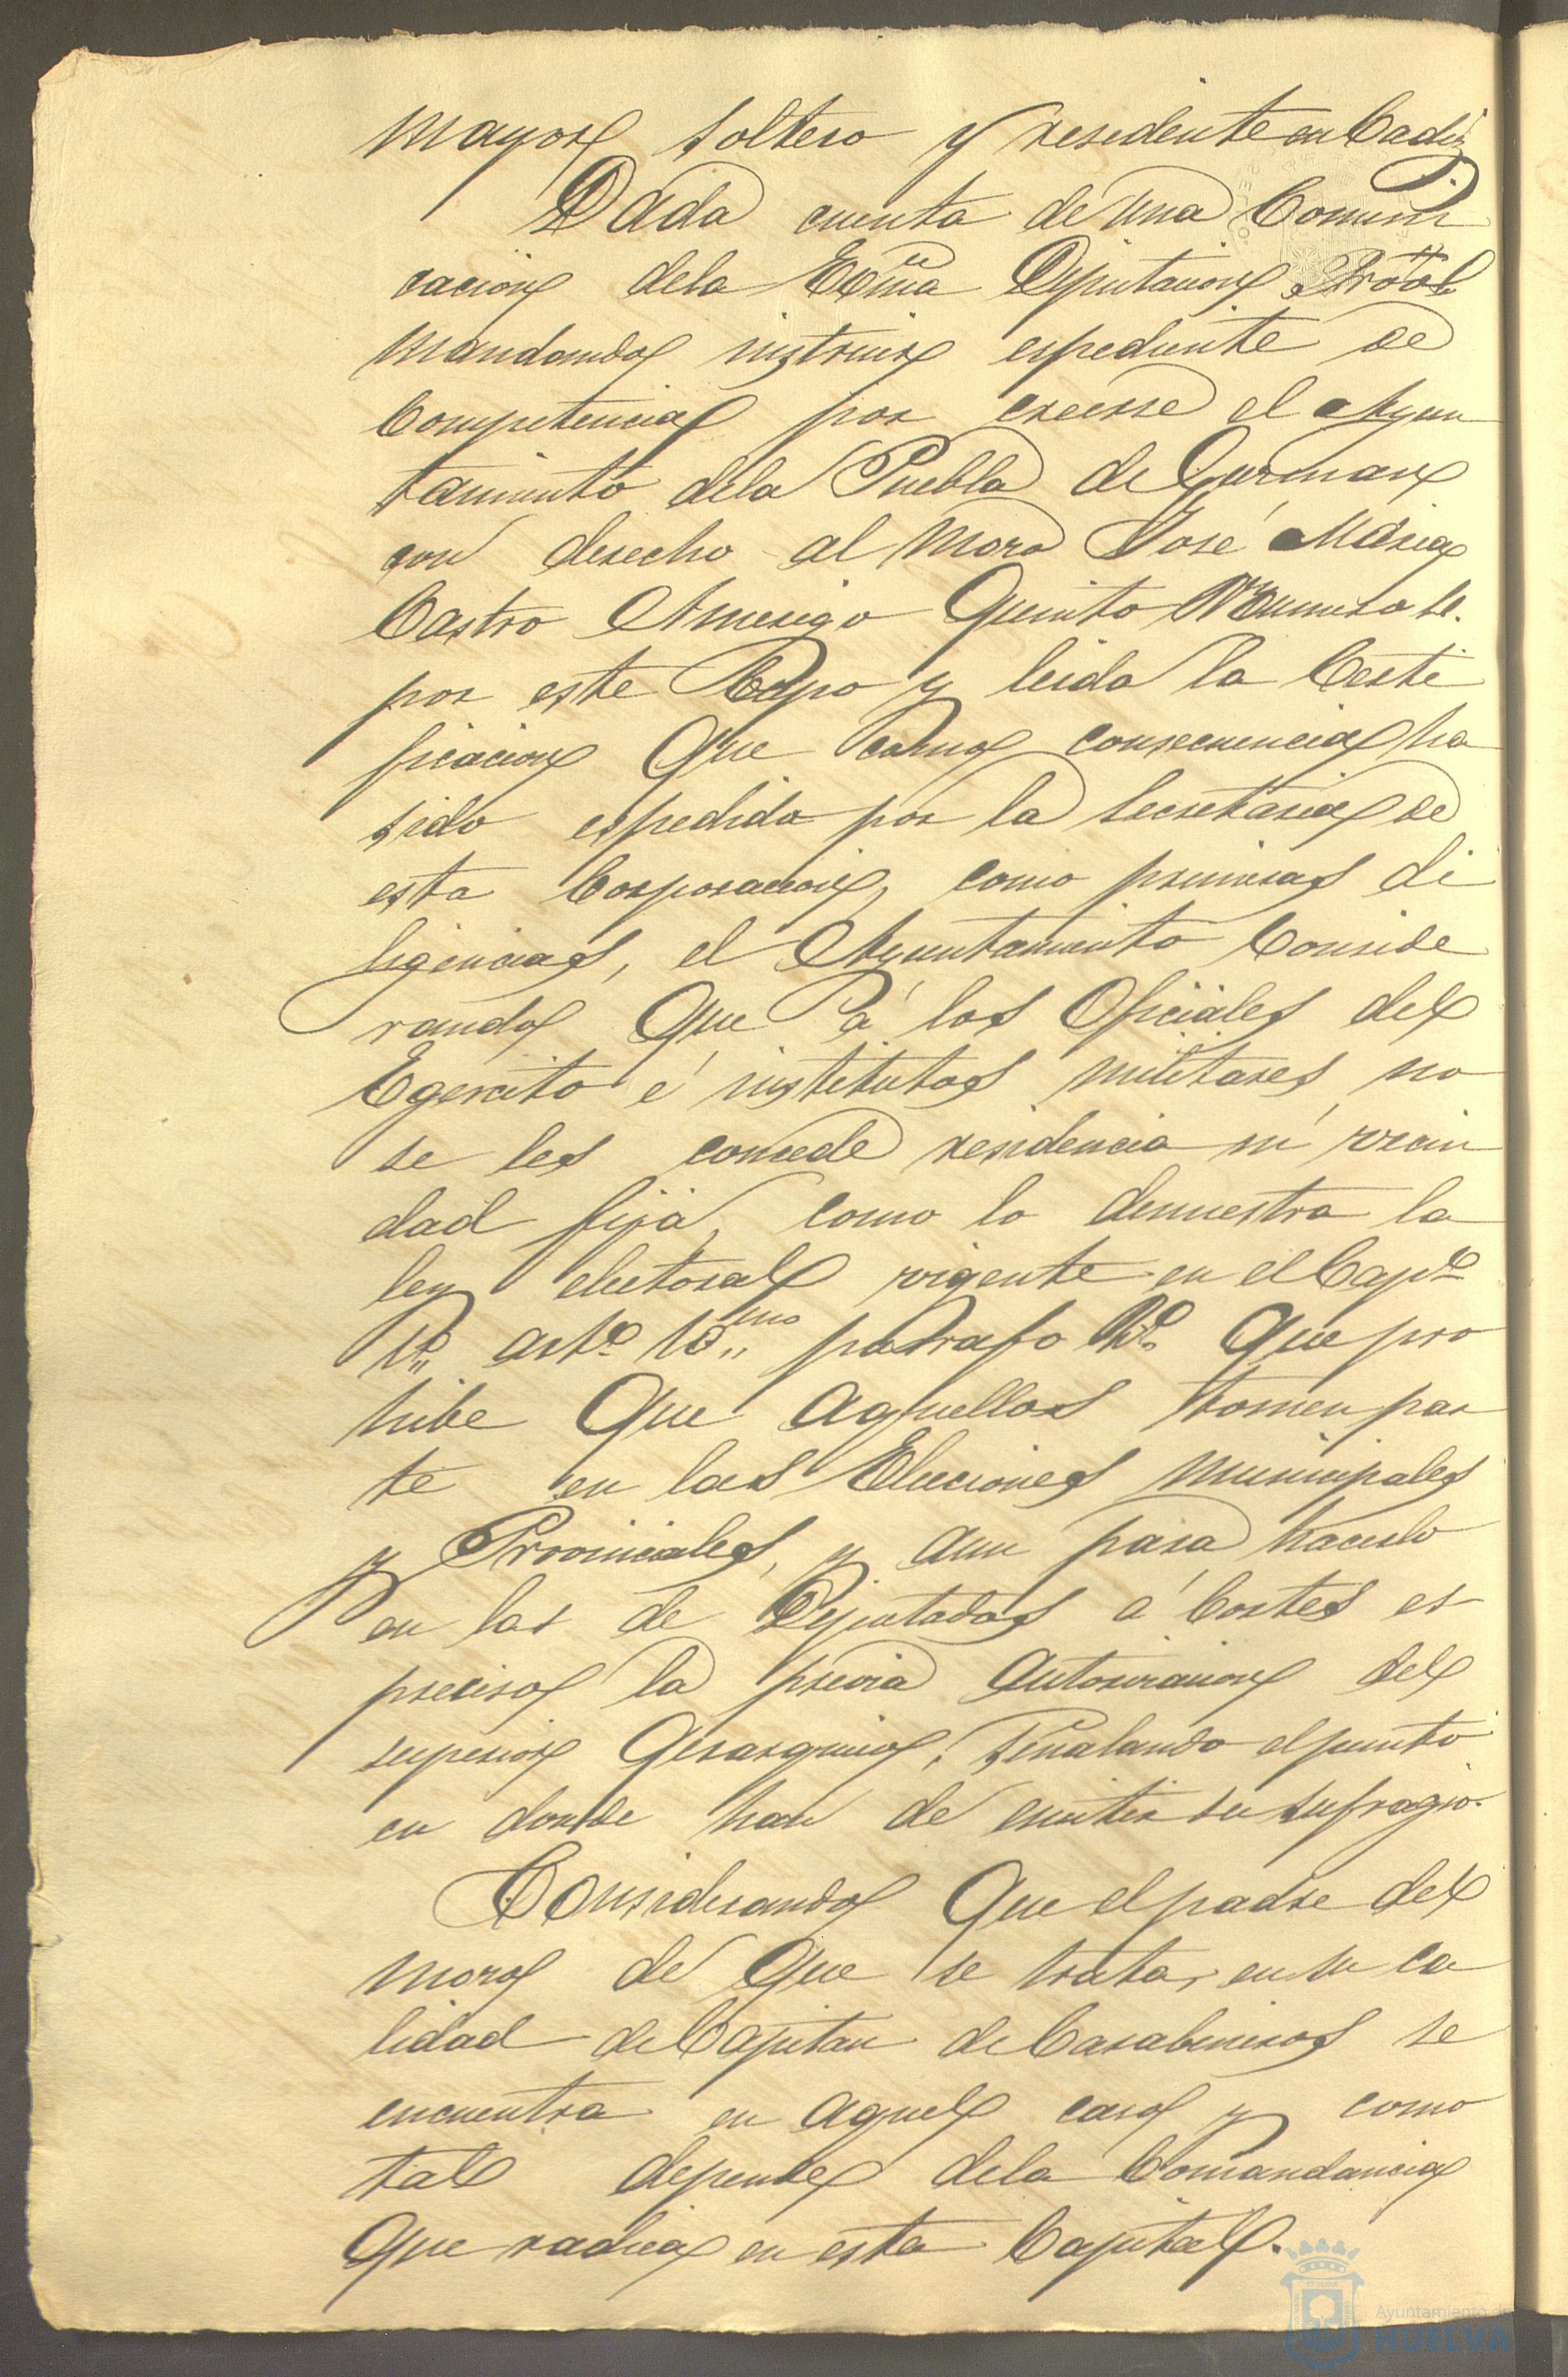 mayor soltero y residente en Cadiz
Dada cuenta de una Comuni
cacion de la Exma Diputacion Provl
mandando instruir espediente de
Competencia por creerse el Ayun
tamiento dela Puebla de Guzman
con derecho al mozo José Maria
Castro Amerigo Quinto Numero
por este Cupo y leida la Certi
ficacion que como consecuencia ha
sido espedida por la Secretaria de
esta Corporacion, como primeras di
ligencias, el Ayuntamiento Conside
rando que á los Oficiales del
Egercito é institutos militares no
se les concede residencia ni vecin
dad fija, como lo demuestra la
ley electoral vigente en el Capº
1º artº parrafo que pro
hibe que aquellos tomen par
te en las Elecciones municipales
y Provinciales, y aun para hacerlo
en las de Diputados á Cortes es
preciso la previa autorizacion del
superior gerarquico, señalando el punto
en donde han de emitir su sufragio.
Considerando que el padre del
mozo de que se trata, en su ca
lidad de Capitan de Carabineros se
encuentra en aquel caso y como
tal depende dela Comandancia
que radica en esta Capital.
Ayuntamiento de
HUELVA